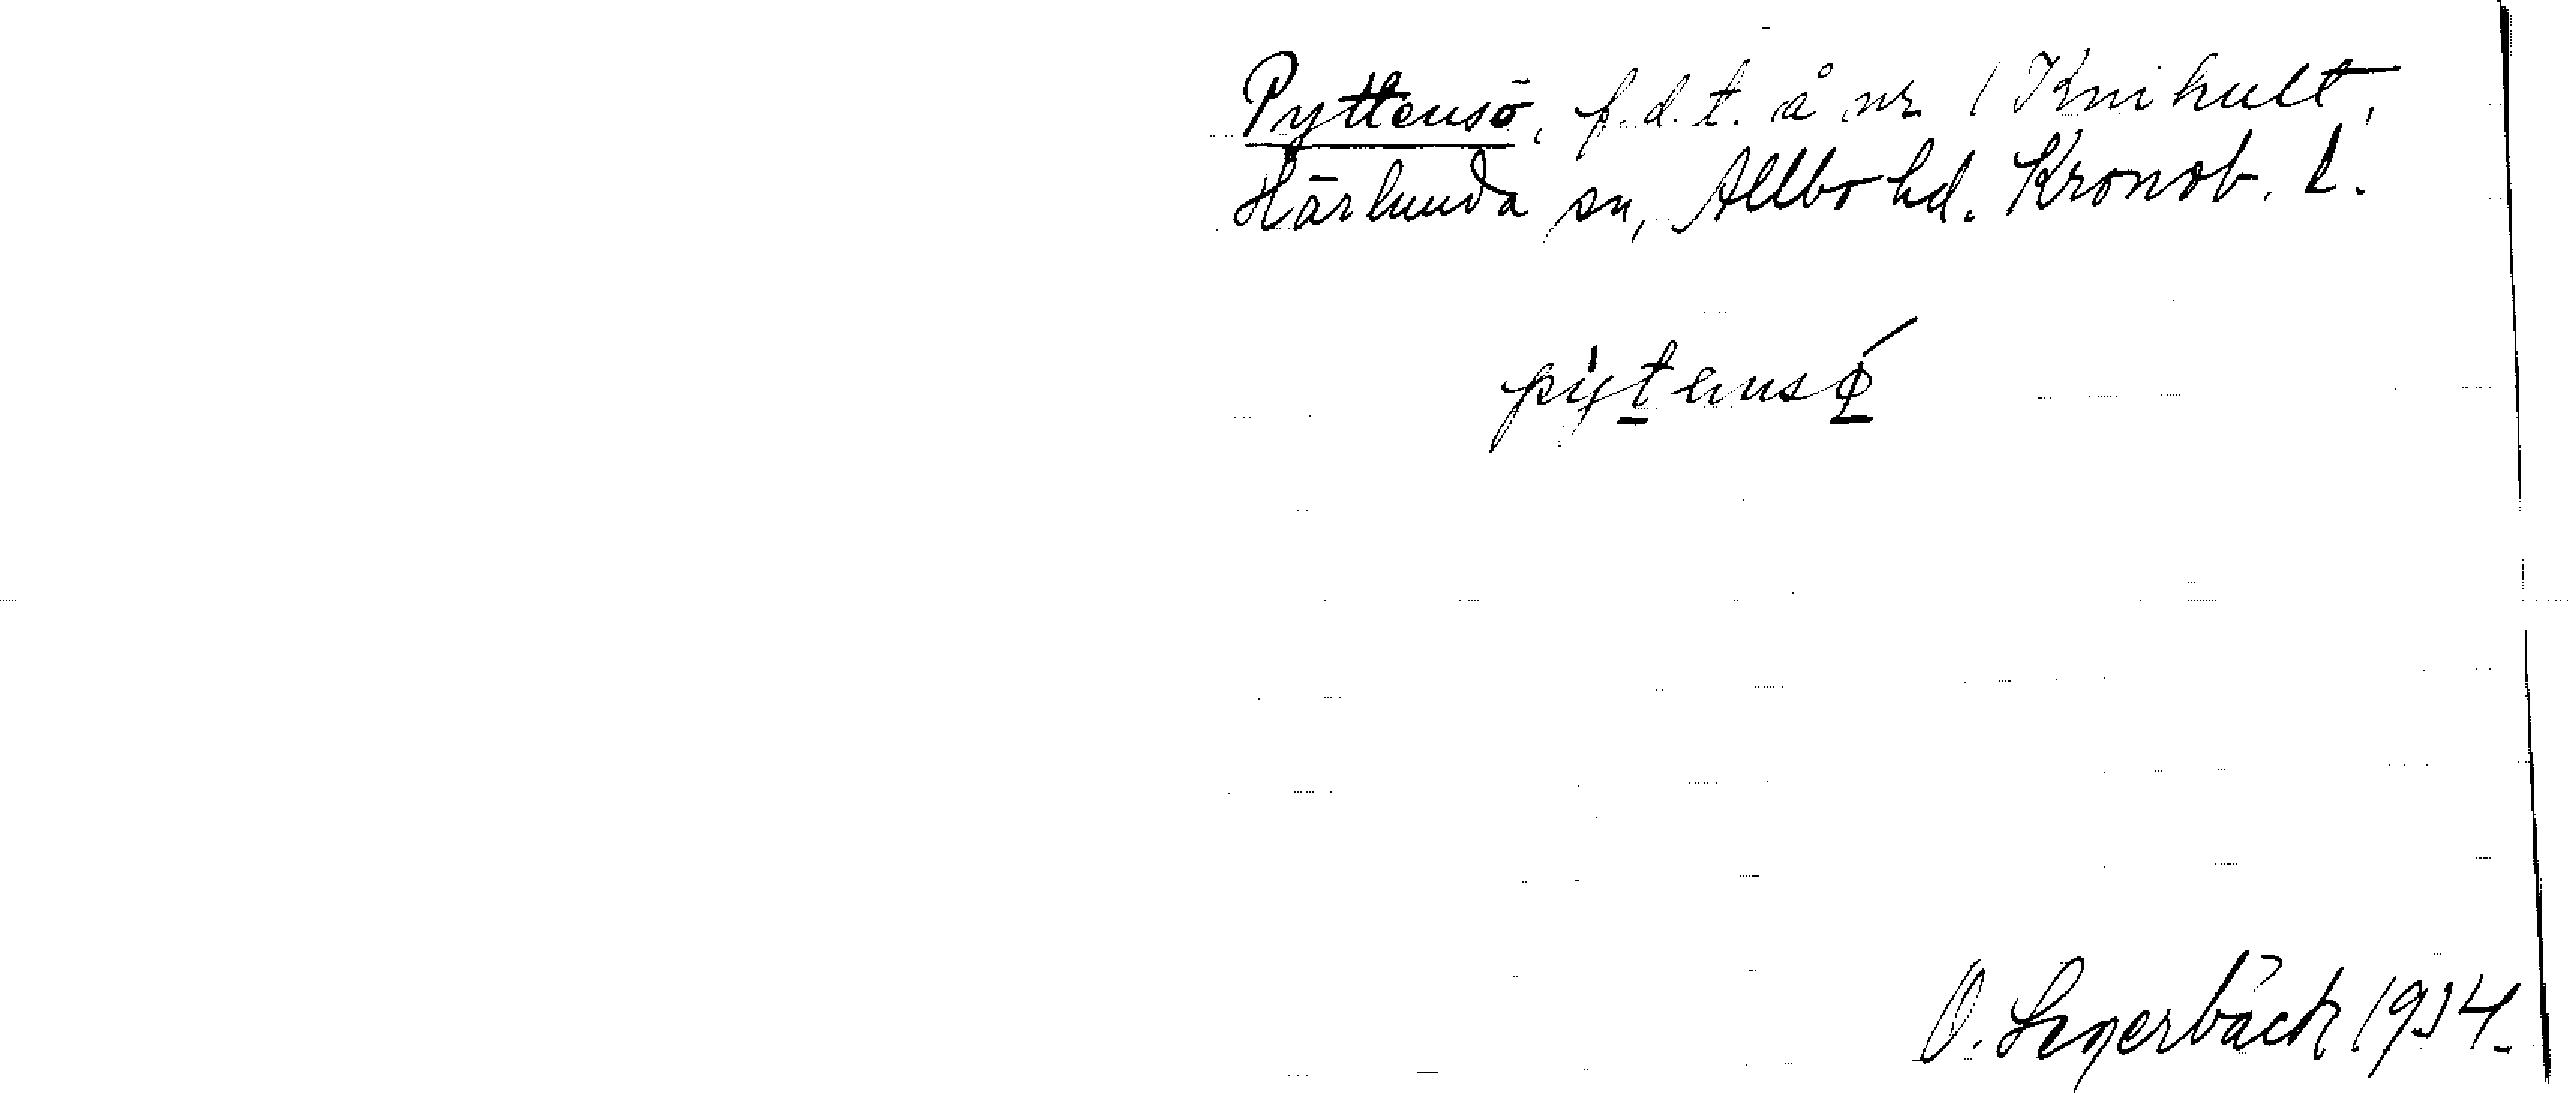 Pyttensö, f.d.t. å nr 1 Knihult,
Härlunda sn, Allbo hd. Kronob. l.
pỳtensǿ
O. Segerbäck 1934.